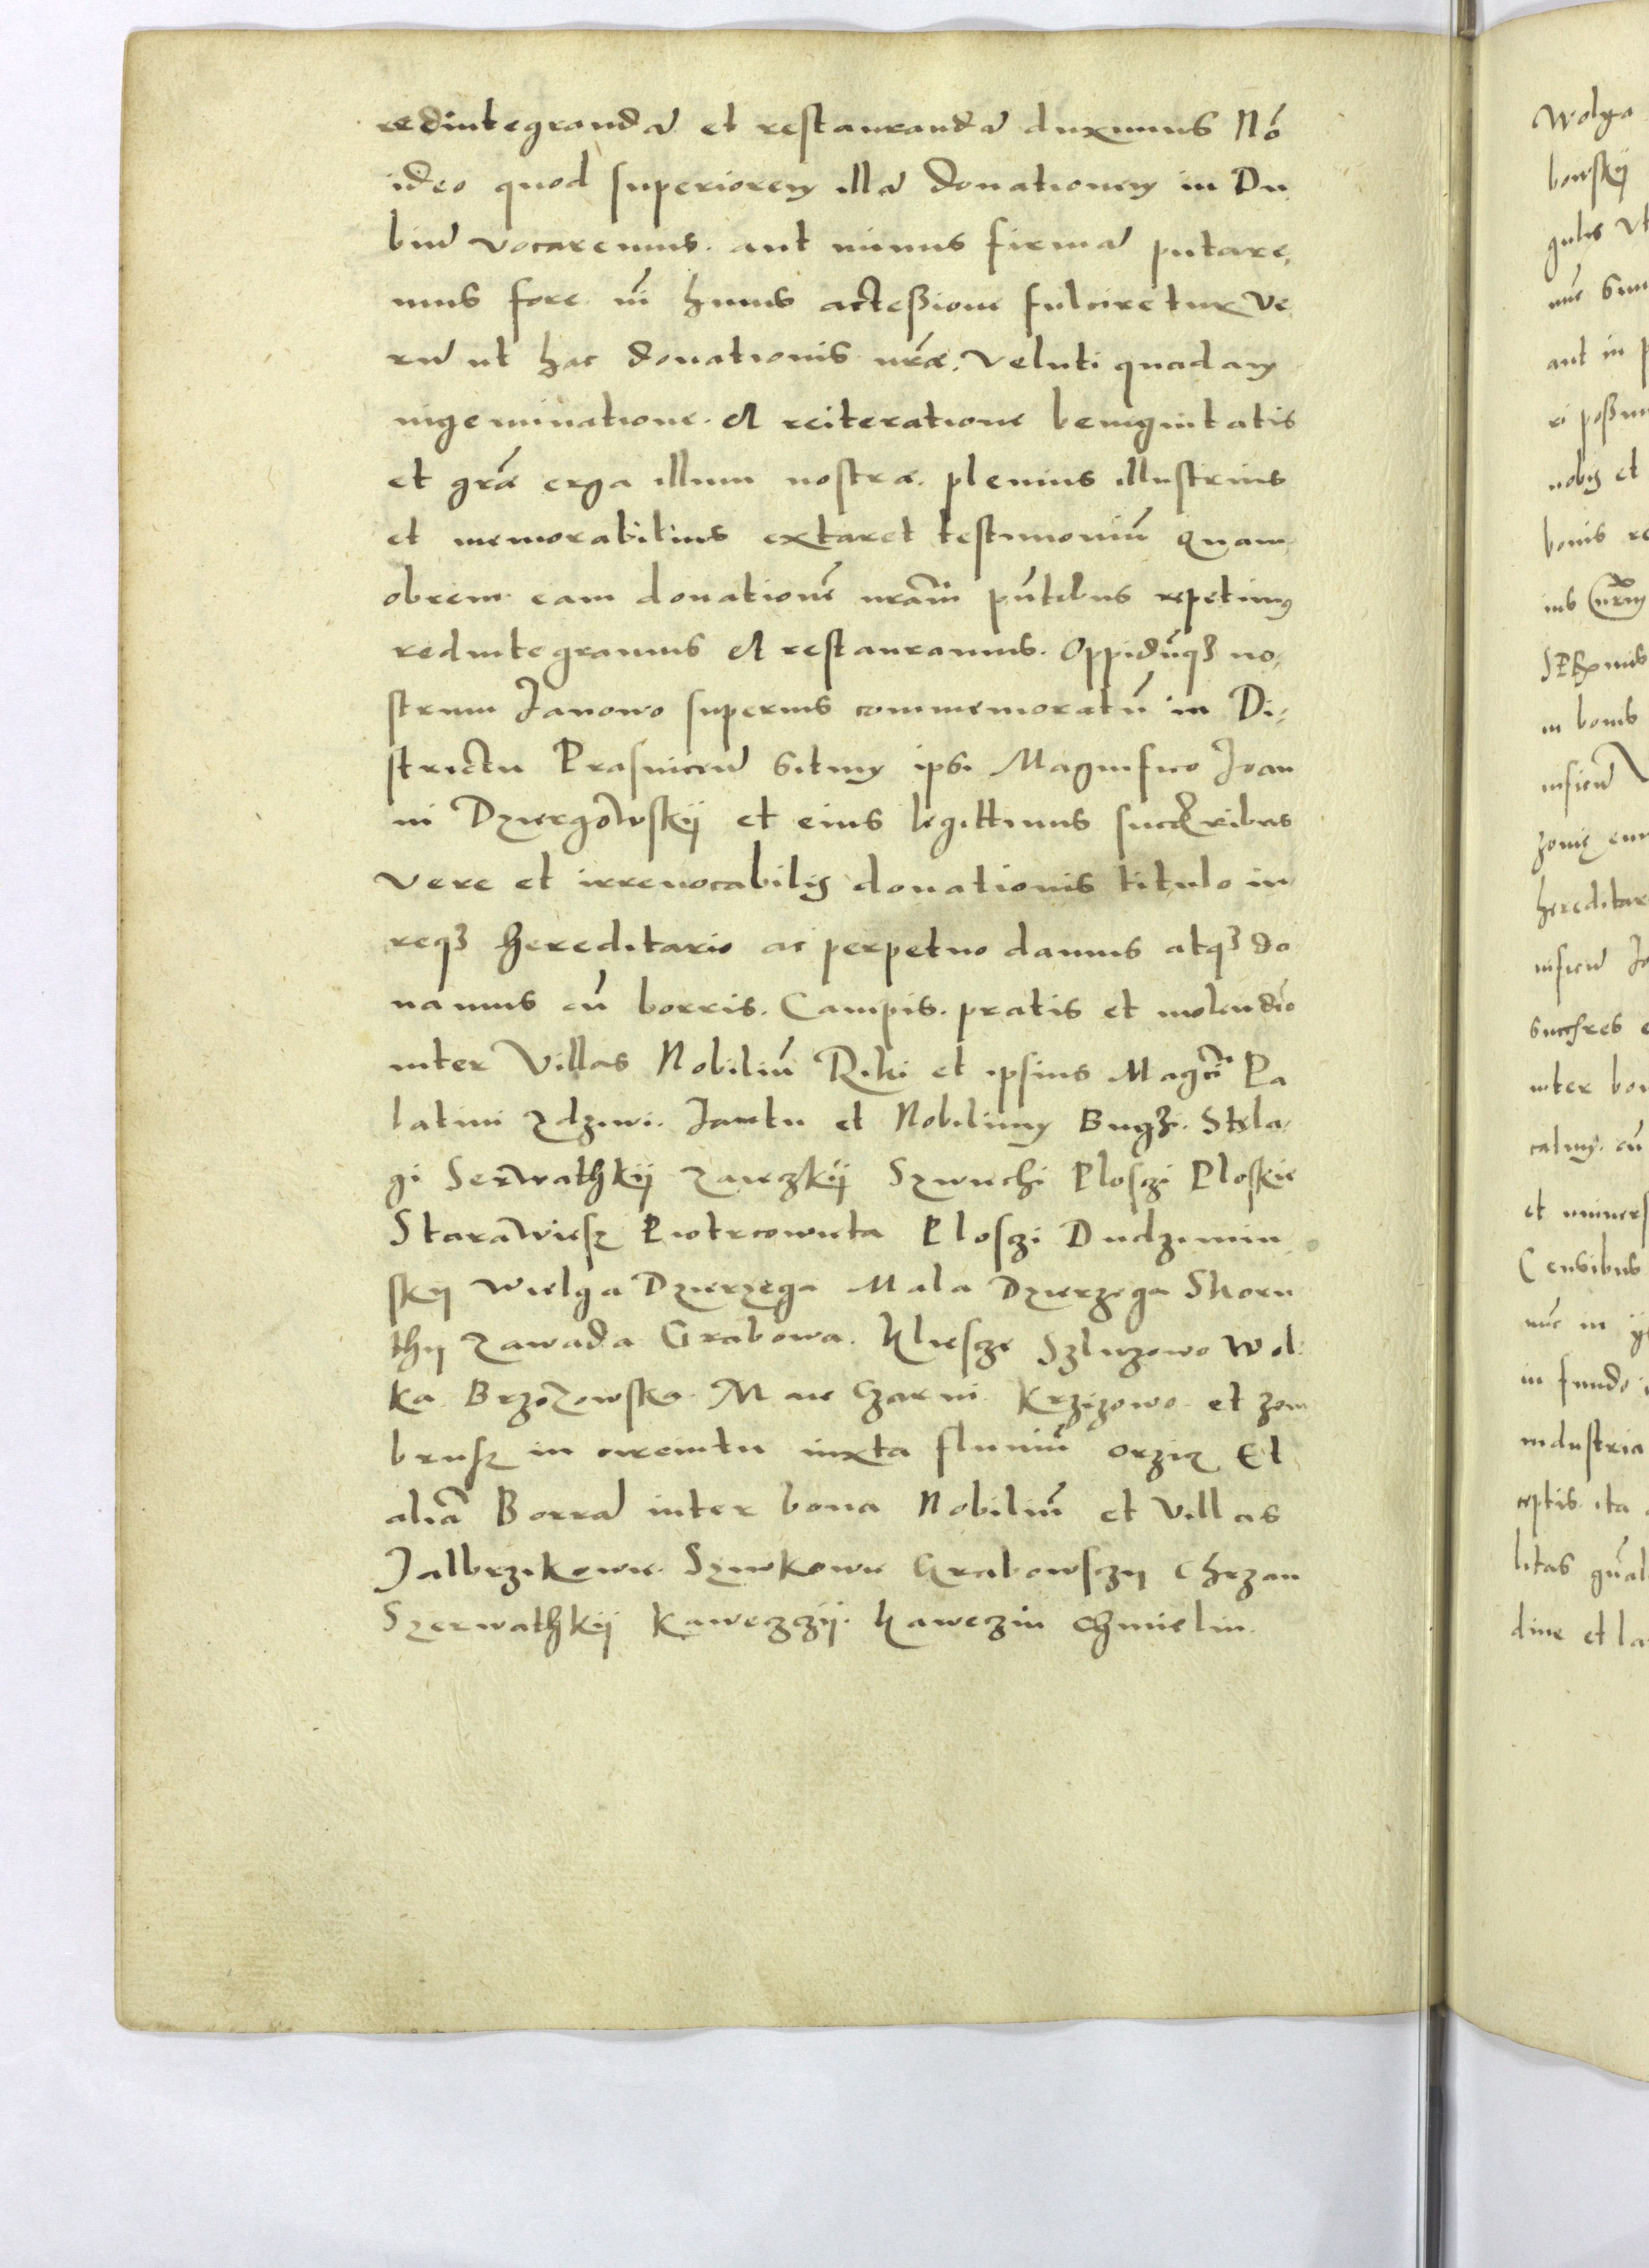 redintegrandā et restaurandā duximus Nō
ideo quod superiorem illā donationem in Du
biū vocaremus. aut minus firmā putare,
mus fore. nī huius actessione fulciretur Ve
rū ut hac donationis nr̄æ. veluti quadam
ingeminatione. et reiteratione benignitatis
et grã erga illum nostræ. plenius illustrius
et memorabilius extaret testimoniū Quam
obrem eam donationē nr̄am pñtibus repetimus
redintegramus et restauramus. Oppidūqȝ no,
strum Janowo superius commemoratū in Di,
strictu Prasnicen̄ situm ipsi Magnifico Joan
ni Dziergowskij et eius legittimis succr̄ibus
vere et irrevocabilis donationis titulo iu
reqȝ hereditario ac perpetuo damus atqȝ do
namus cū borris. Campis. pratis et molendīo
inter Villas Nobiliū Riki et ipsius Magcī Pa
latini Zdziwi. Jantu et Nobilium Bugzi. Stęla,
gi Serwathkij Zawczkij Szwichi Plosczi Ploskie
Starawiesz Piotrcowieta Plosczi Dudzimin
skij Wielga Dzierzega Mala Dzierzega Skoru
thij Zawada Grabowa. Kliescze Szluzowo Wol:
ka Brzozowska. M Czarni Krzizowo et zem
brusz in circuitu iuxta fluuiū orzicz Et
aliā Borrā inter bona Nobiliū et villas
Jalbrzikowie. Szwkowie Grabowsczij Chrzan
Szerwathkij Kaweczczij. Kaweczin Chmielin.
Wolga
bowskij
gulis vt
nūc sum
aut in p
ri possun
nobis et
bonis re
ius
in bonis
zonię
hereditar
succr̄es e
inter bon
catum. cū
et univers
Censibus
nūc in
in fundo
industria
ceptis. ita
litas
dine et la